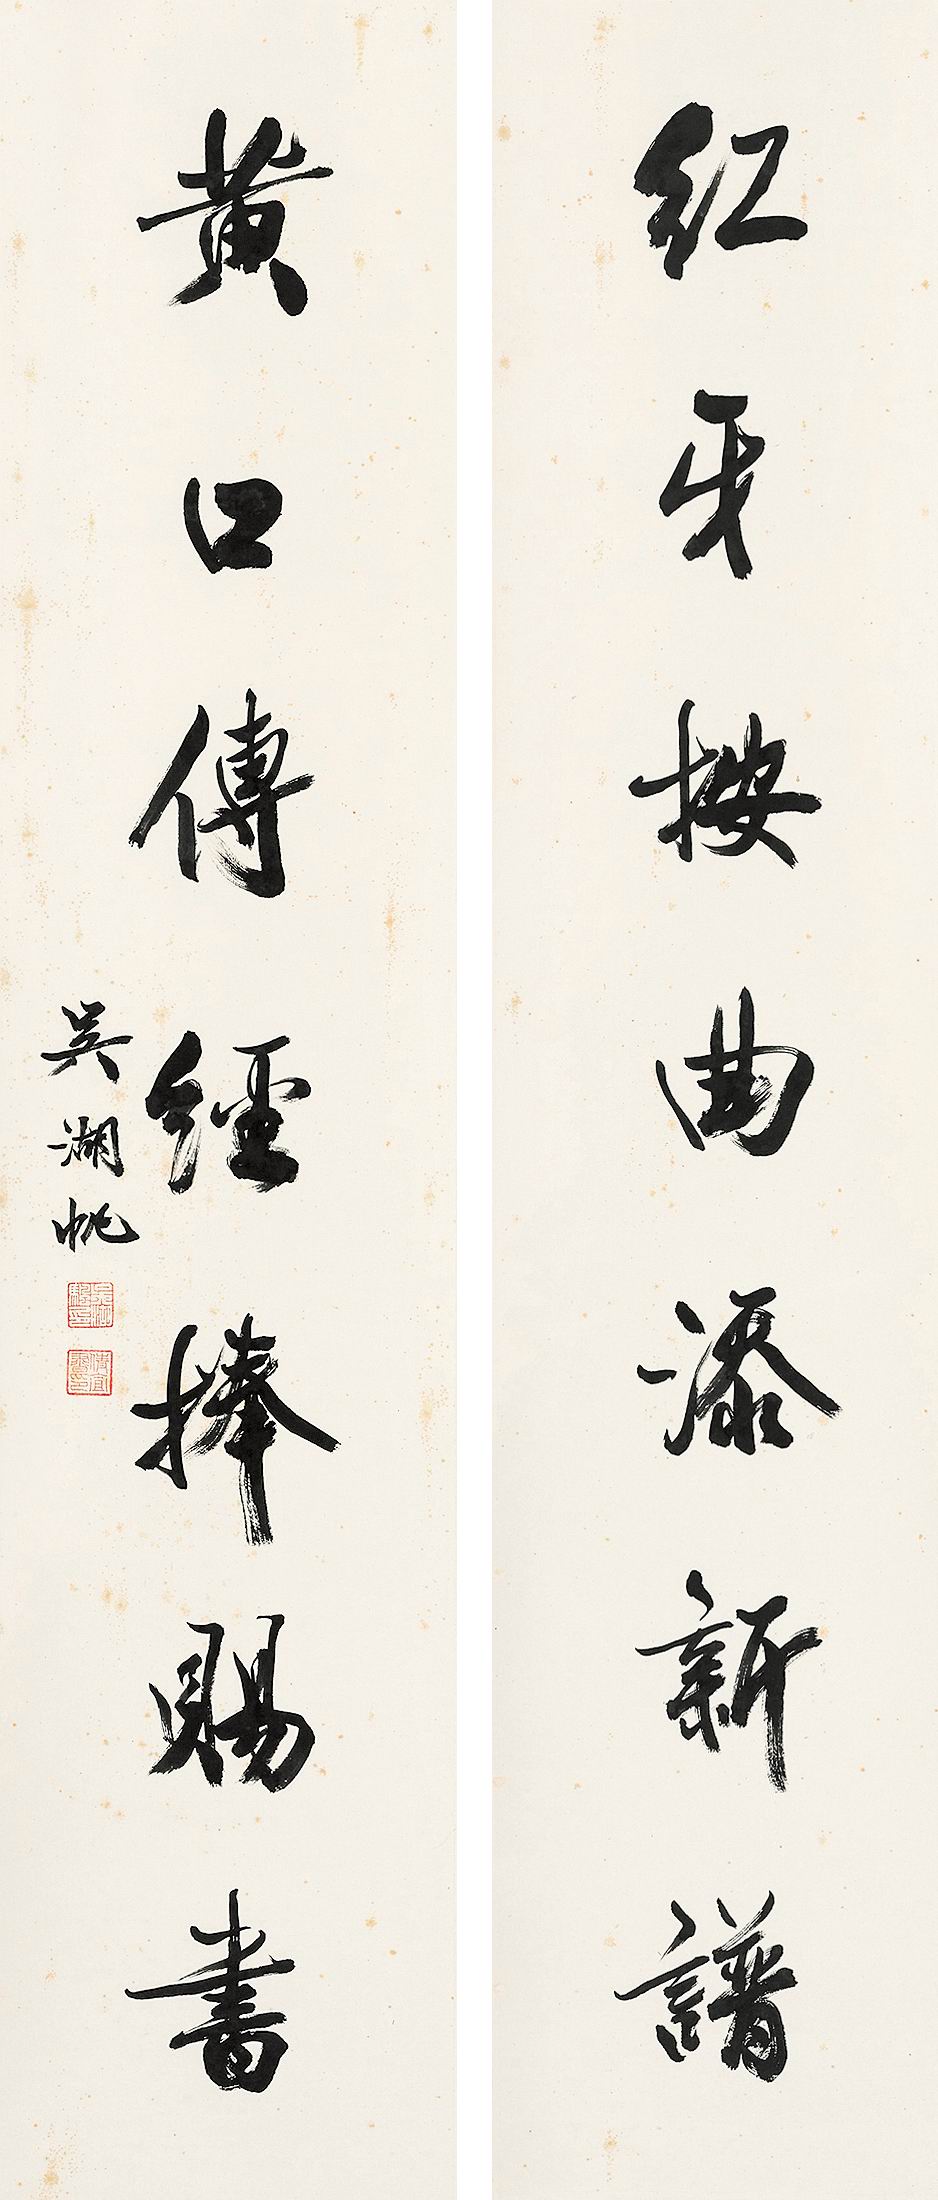 紅牙按曲添新譜
黄口傳經捧賜書
吳湖帆